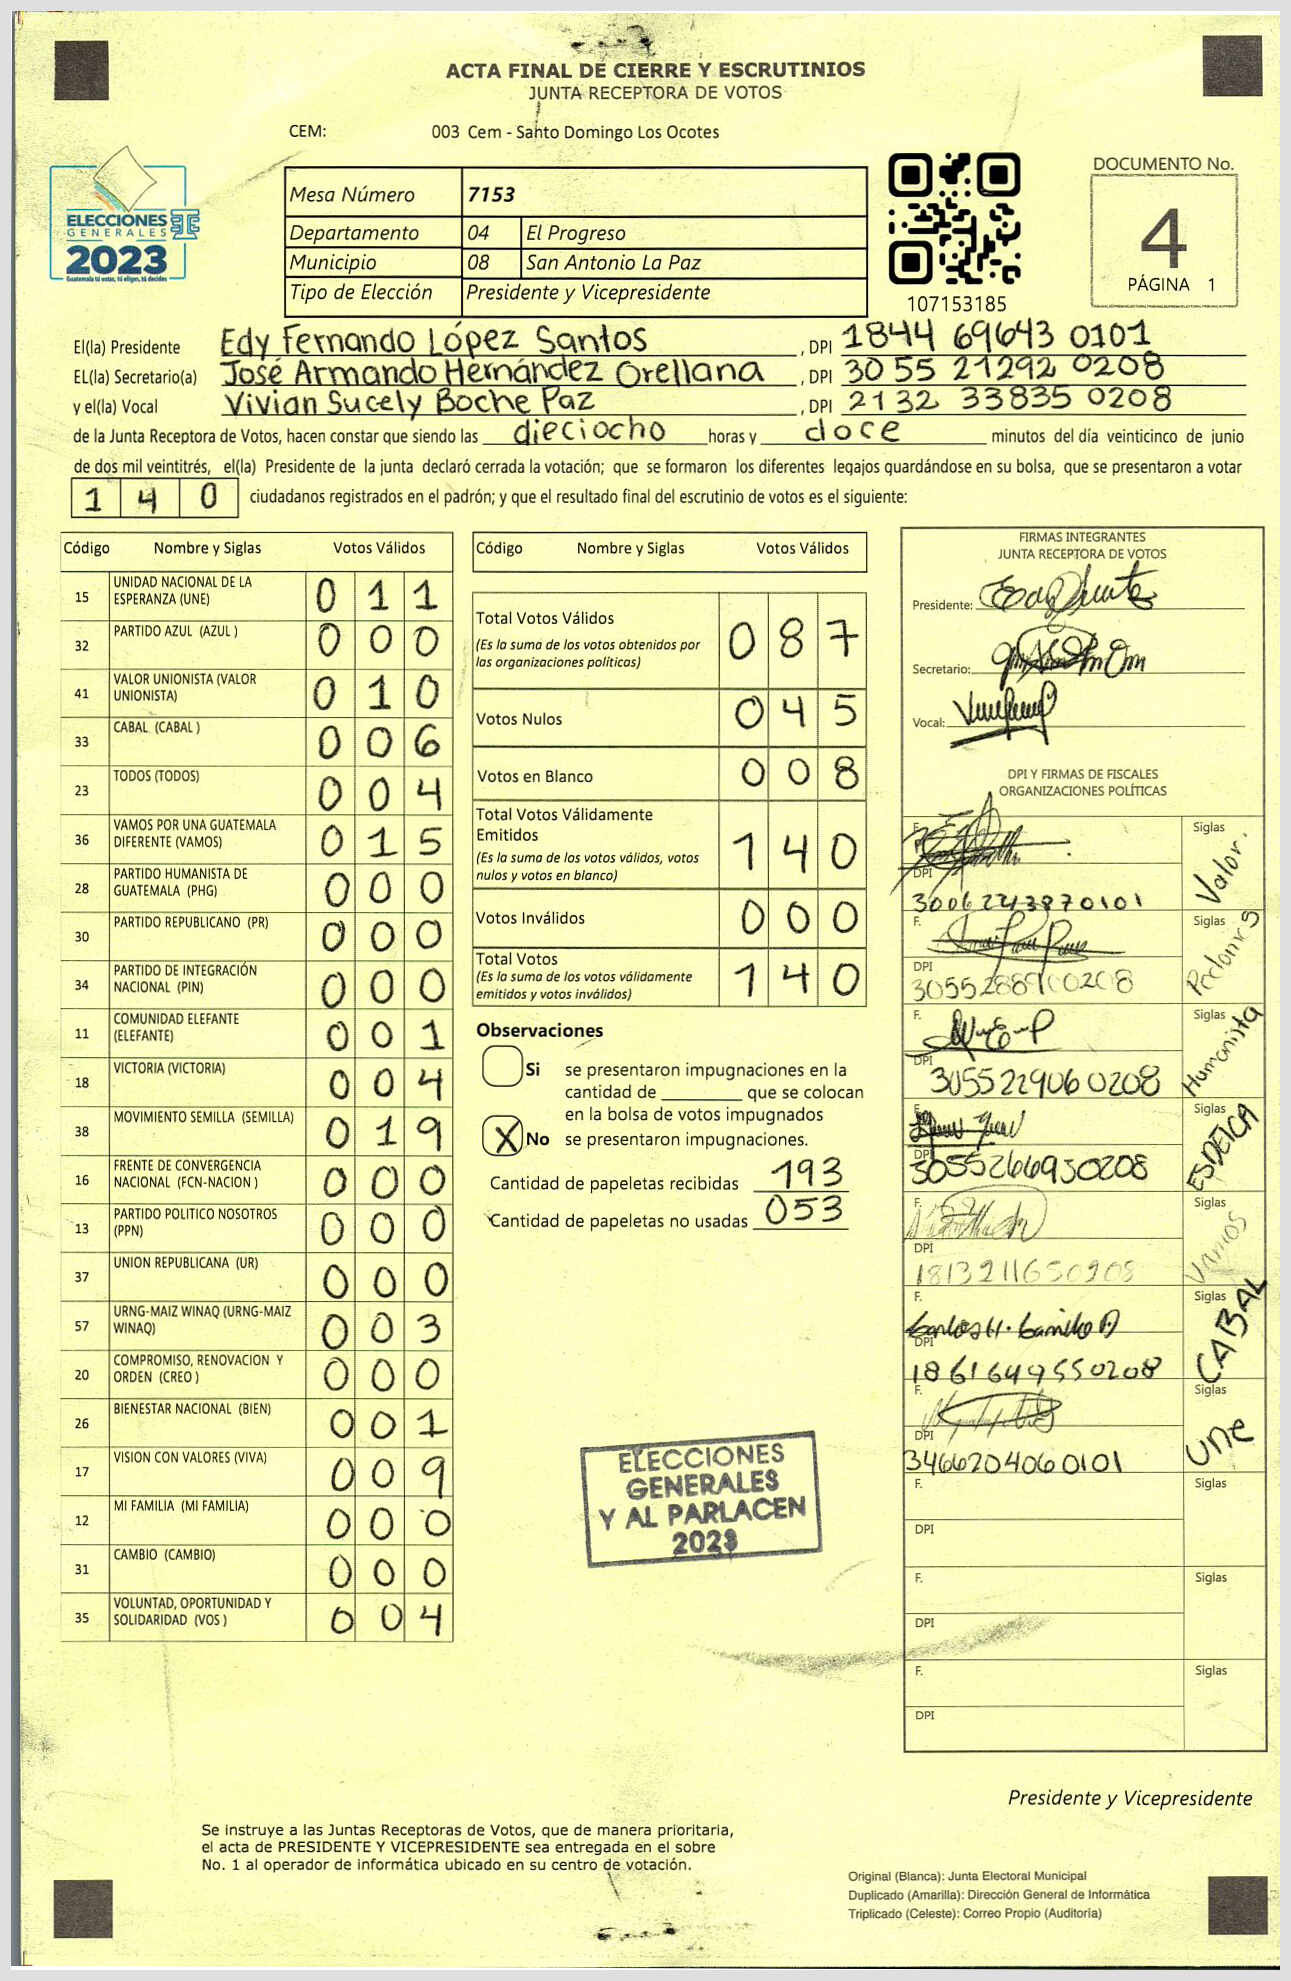 ACTA FINAL DE CIERRE Y ESCRUTINIOS
JUNTA RECEPTORA DE VOTOS
CEM: 003 Cem - Santo Domingo Los Ocotes
ELECCIONES
GENERALES
2023
Guatemala tú votas, tú eliges, tú decides
Mesa Número 7153
Departamento 04 El Progreso
Municipio 08 San Antonio La Paz
Tipo de Elección Presidente y Vicepresidente
107153185
DOCUMENTO No.
4
PÁGINA 1
El(la) Presidente Edy Fernando López Santos, DPI 1844 69643 0101
EL(la) Secretario(a) José Armando Hernández Orellana, DPI 3055 21292 0208
y el(la) Vocal Vivian Sucely Boche Paz, DPI 2132 33835 0208
de la Junta Receptora de Votos, hacen constar que siendo las dieciocho horas y doce minutos del día veinticinco de junio
de dos mil veintitrés, el(la) Presidente de la junta declaró cerrada la votación; que se formaron los diferentes legajos guardándose en su bolsa, que se presentaron a votar
140 ciudadanos registrados en el padrón; y que el resultado final del escrutinio de votos es el siguiente:
Código Nombre y Siglas Votos Válidos
15 UNIDAD NACIONAL DE LA ESPERANZA (UNE) 011
32 PARTIDO AZUL (AZUL ) 000
41 VALOR UNIONISTA (VALOR UNIONISTA) 010
33 CABAL (CABAL ) 006
23 TODOS (TODOS) 004
36 VAMOS POR UNA GUATEMALA DIFERENTE (VAMOS) 015
28 PARTIDO HUMANISTA DE GUATEMALA (PHG) 000
30 PARTIDO REPUBLICANO (PR) 000
34 PARTIDO DE INTEGRACIÓN NACIONAL (PIN) 000
11 COMUNIDAD ELEFANTE (ELEFANTE) 001
18 VICTORIA (VICTORIA) 004
38 MOVIMIENTO SEMILLA (SEMILLA) 019
16 FRENTE DE CONVERGENCIA NACIONAL (FCN-NACION ) 000
13 PARTIDO POLITICO NOSOTROS (PPN) 000
37 UNION REPUBLICANA (UR) 000
57 URNG-MAIZ WINAQ (URNG-MAIZ WINAQ) 003
20 COMPROMISO, RENOVACION Y ORDEN (CREO ) 000
26 BIENESTAR NACIONAL (BIEN) 001
17 VISION CON VALORES (VIVA) 009
12 MI FAMILIA (MI FAMILIA) 000
31 CAMBIO (CAMBIO) 000
35 VOLUNTAD, OPORTUNIDAD Y SOLIDARIDAD (VOS ) 004
Código Nombre y Siglas Votos Válidos
Total Votos Válidos 087
(Es la suma de los votos obtenidos por
las organizaciones políticas)
Votos Nulos 045
Votos en Blanco 008
Total Votos Válidamente
Emitidos 140
(Es la suma de los votos válidos, votos
nulos y votos en blanco)
Votos Inválidos 000
Total Votos 140
(Es la suma de los votos válidamente
emitidos y votos inválidos)
Observaciones
Si se presentaron impugnaciones en la
cantidad de ________ que se colocan
en la bolsa de votos impugnados
X No se presentaron impugnaciones.
Cantidad de papeletas recibidas 193
Cantidad de papeletas no usadas 053
ELECCIONES
GENERALES
Y AL PARLACEN
2023
FIRMAS INTEGRANTES
JUNTA RECEPTORA DE VOTOS
Presidente:
Secretario:
Vocal:
DPI Y FIRMAS DE FISCALES
ORGANIZACIONES POLÍTICAS
F. Siglas Valor.
DPI 3006224387​0101
F. Siglas
DPI
F. Siglas Humanista
DPI 3055229060208
F. Siglas
DPI 3055266950208
F. Siglas Vamos
DPI 1813211650208
F. Siglas CABAL
DPI 1861649550208
F. Siglas Une
DPI 3466204060101
F. Siglas
DPI
F. Siglas
DPI
F. Siglas
DPI
Presidente y Vicepresidente
Se instruye a las Juntas Receptoras de Votos, que de manera prioritaria,
el acta de PRESIDENTE Y VICEPRESIDENTE sea entregada en el sobre
No. 1 al operador de informática ubicado en su centro de votación.
Original (Blanca): Junta Electoral Municipal
Duplicado (Amarilla): Dirección General de Informática
Triplicado (Celeste): Correo Propio (Auditoría)